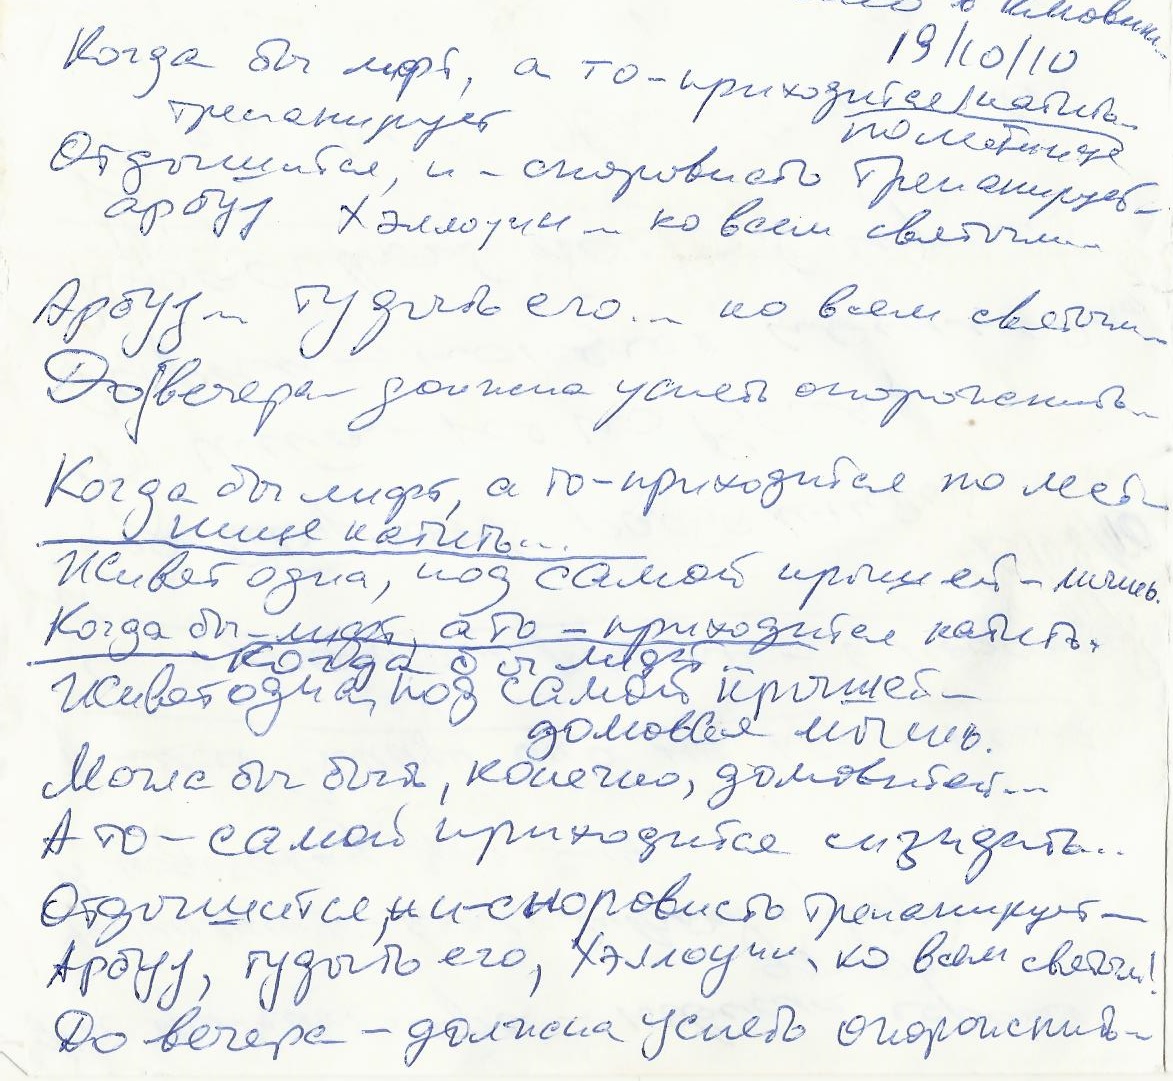 19/10/10
Когда бы лифт, а то-приходится/катить..
трепанирует по лестнице
Отдышится, и - сноровисто трепанирует-
арбуз Хэллоуин... ко всем святым...
Арбуз... тудыть его... ко всем святым...
До/вечера- должна успеть опорожнить...
Когда бы лифт, а то-приходится по лест-
нице катить...
Живет одна, под самой крышей- мышь.
Когда бы-лифт, а то - приходится катить.
Когда бы лифт..
Живет одна, под самой крышей-
домовая мышь.
Могла бы быть, конечно, домовитей...
А то-самой приходится
Отдышится, и-сноровисто трепанирует-
Арбуз, тудыть его, Хэллоуин, ко всем святым!
До вечера - должна успеть опорожнить..